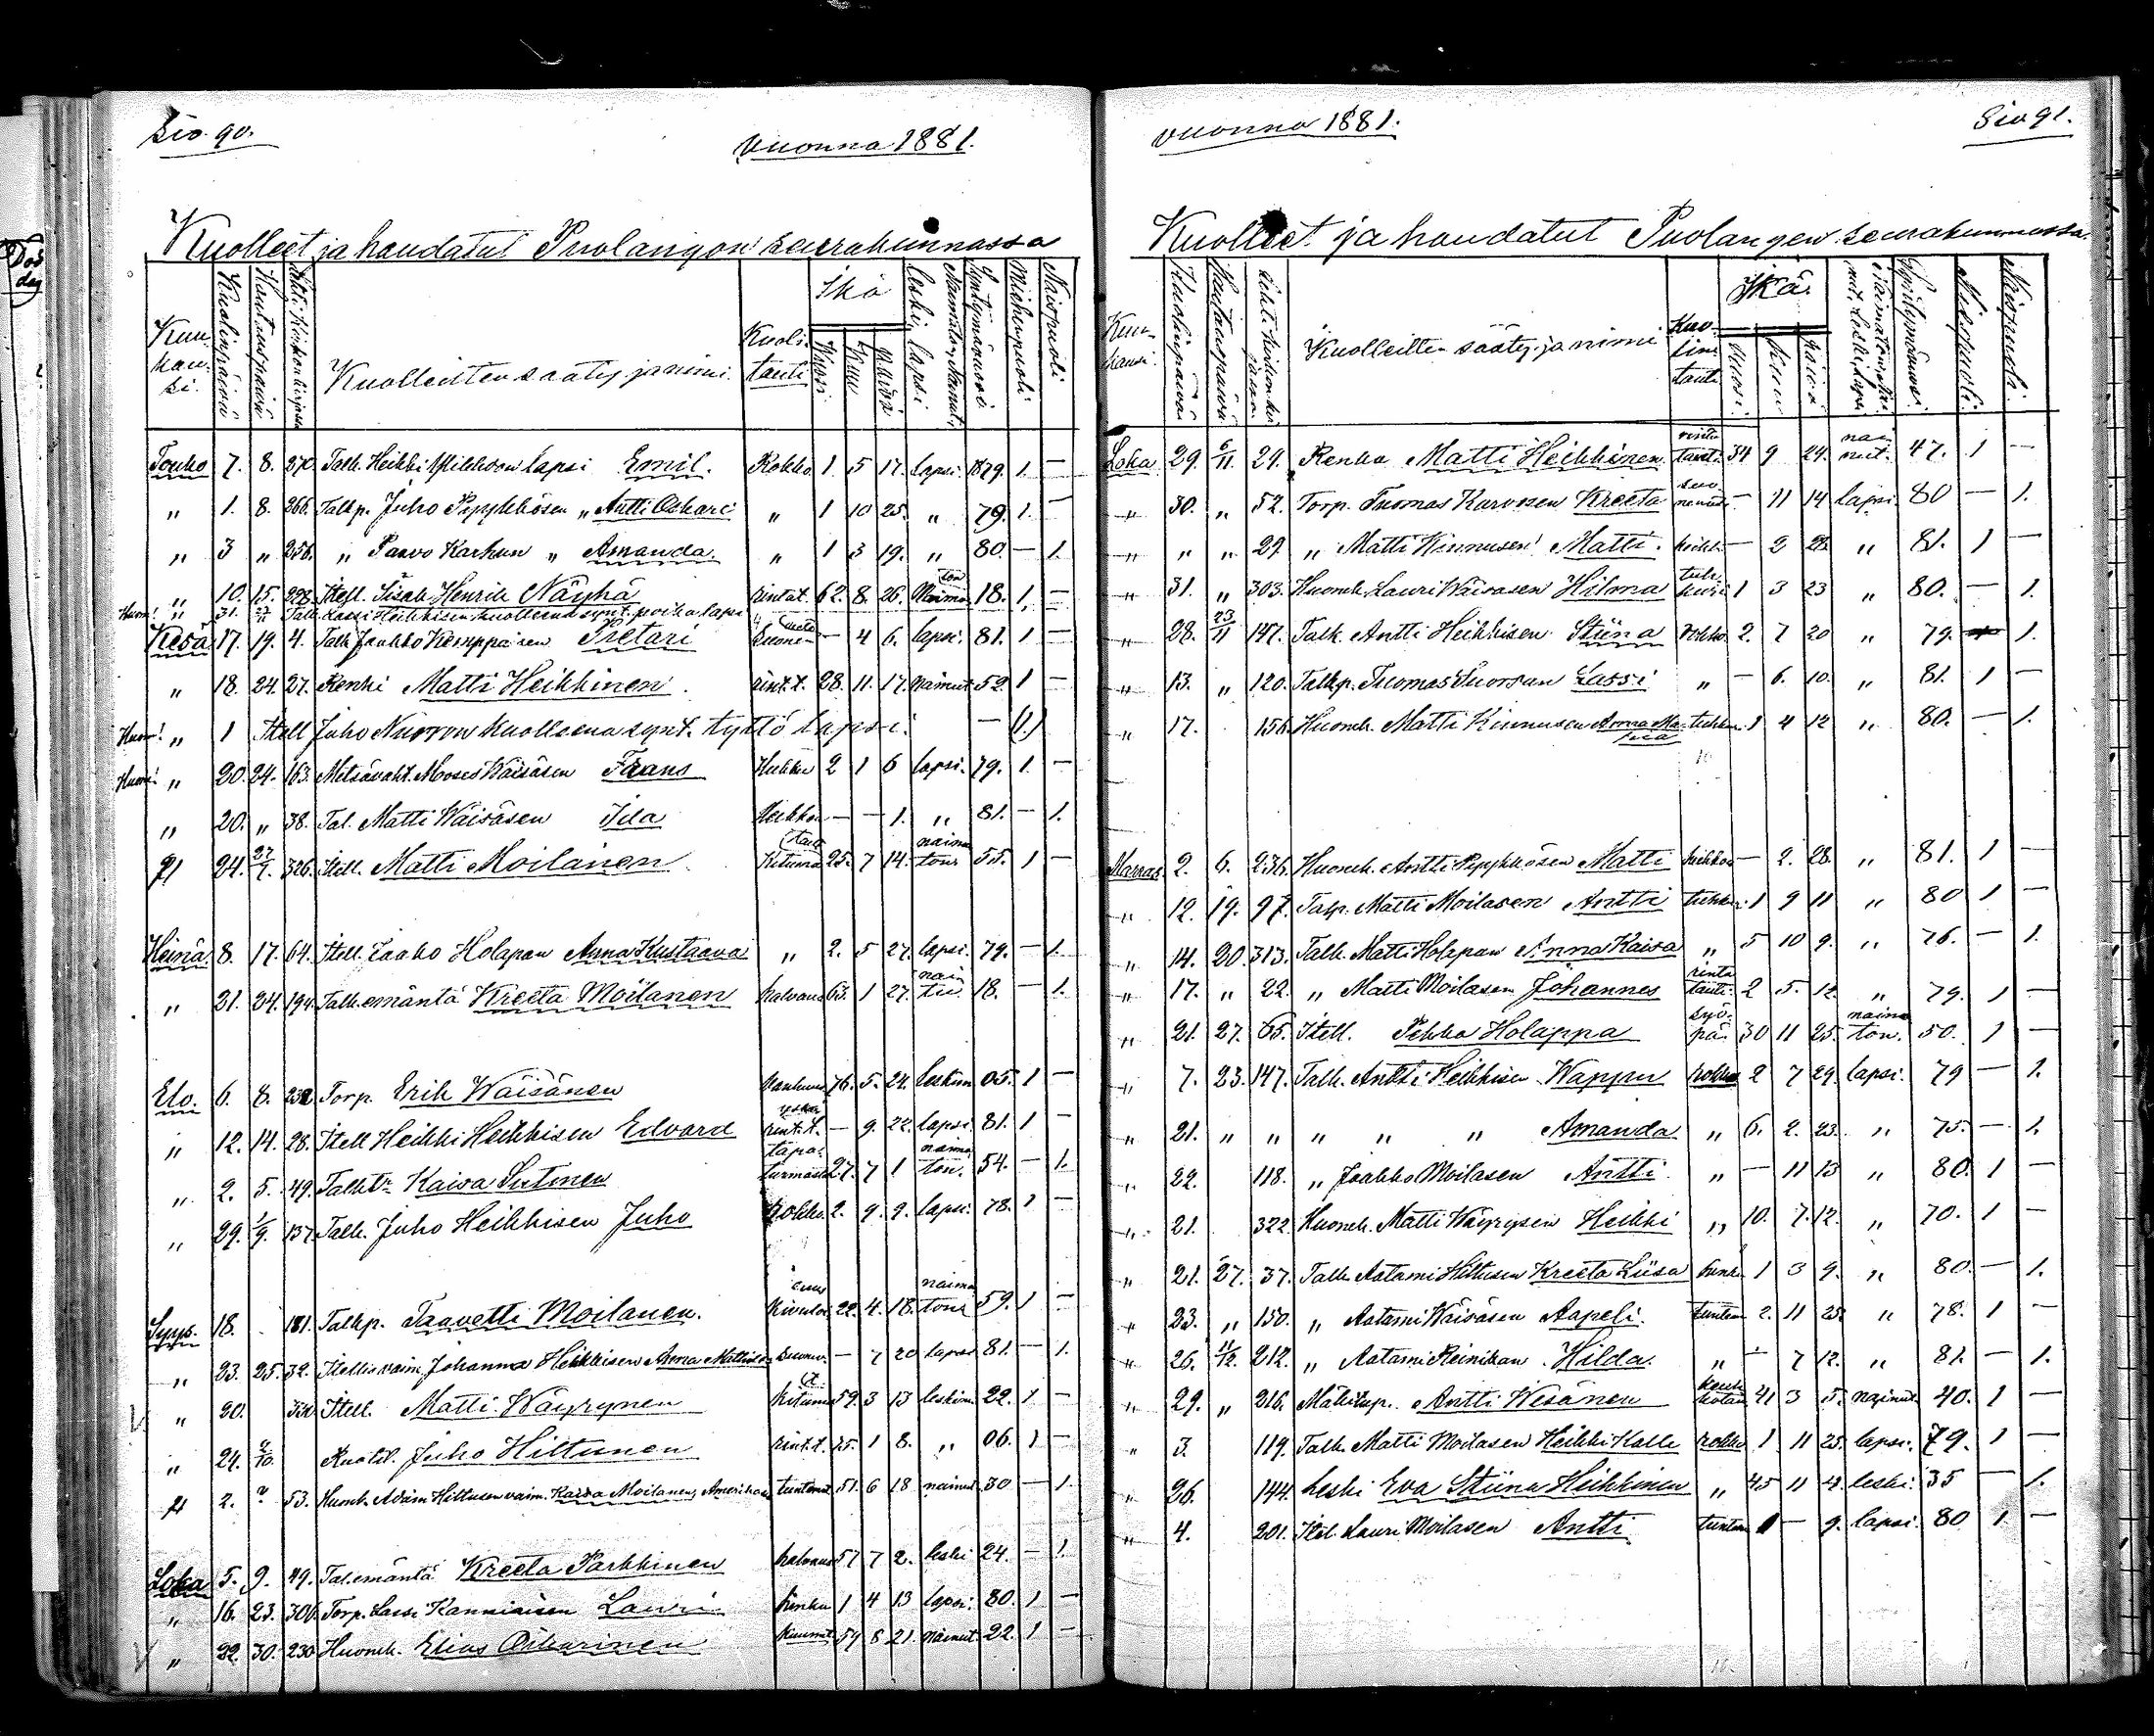 Siv. 90.
vuonna 1881.
Kuolleet ja haudatut Puolangon seurakunnassa
Kuukausi. Kuolinpäivä Hautauspäivä Kuolleitten sääty ja nimi. Kuolitauti Ikä Vuosi Kuu Päivä Leski, lapsi Syntymävuosi Miehenpuoli Naispuoli
Touko 7. 8. 270 Talk. Heikki lapsi Emil. Rokko 1 5 17. lapsi. 1879. 1. —
" 1. 8. 266. Talkp. Juho Pyykkösen " Antti Oskari " 1 10 25. " 79. 1. —
" 3 " 256. " Paavo Karhun " Amanda. " 1 3 19. " 80. — 1.
" 10. 15. 228. Itell. Henrik Näyhä rintat. 62. 8. 26. Naimaton 18. 1. —
Huom! " 31. Talk. Lassi Heikkisen kuolleena synt. poika lapsi
Kesä 17. 19. 4. Talk. Jaakko Kemppainen Pietari — 4 6. lapsi. 81. 1 —
" 18. 24. 27. Renki Matti Heikkinen. rint.t. 28. 11. 17. Nainut 52. 1 —
Huom! " 1 Itell Juho kuolleena synt. tyttö lapsi. — (1.)
Huom! " 20. 24. 163. Metsävaht. Moses Wäisäsen Frans Heikko 2 1 6 lapsi. 79. 1. —
" 20. " 38. Tal. Matti Wäisäsen Ida Heikko — — 1. " 81. — 1.
" 24. 27/7. 326. Itell. Matti Moilanen Kituma taut 25. 7 14. naimaton 55. 1 —
Heinä 8. 17. 64. Itell. Jaako Holapan Anna Kustaava " 2. 5 27. lapsi. 79. — 1.
" 21. 24. 194. Talk. emäntä Kreeta Moilanen halvaus 63. 1 27. naitu 18. — 1.
Elo. 6. 8. 232 Torp. Erik Wäisänen Vanhuus 76. 5. 24. leskim 05. 1 —
" 12. 14. 28. Itell Heikki Heikkisen Edvard rint.t. — 9. 22. lapsi. 81. 1 —
" 2. 5. 49. Talk tr Kaisa Sutinen tapaturmasta 27. 7 1 naimaton. 54. — 1.
" 29. 1/9. 137. Talk. Juho Heikkisen Juho Rokko. 2. 9. 9. lapsi. 78. 1 —
Syys. 18. 181. Talkp. Taavetti Moilanen. 22. 4. 18. naimaton 59. 1 —
" 23. 25. 32. Itellisvaim. Johanna Heikkisen Anna — 7 20 lapsi 81. — 1.
" 20. Itell. Matti Wäyrynen Kituma t. 59. 3 13 leskim. 22. 1 —
" 24. 2/10. Ruotil. Juho Hiltunen rint.t. 75. 1 8. " 06. 1 —
" 2. ? 53. Huonk. Adam Hiltusen vaim. Kaisa Moilanen, Amerikassa tuntemat 51. 6 18 nainut 30 — 1.
Loka 5. 9. 49. Tal. emäntä Kreeta Parkkinen halvaus 57 7 2. leski 24. — 1
" 16. 23. 306. Torp. Lassi Kanniaisen Lauri hinku 1 4 13 lapsi. 80. 1 —
" 22. 30. 230 Huonek. Elias Oikarinen kuumet 59 8 21. nainut. 22. 1 —
vuonna 1881.
Siv 91.
Kuolleet ja haudatut Puolangan seurakunnassa.
Kuukausi. Kuolinpäivä Hautauspäivä Kuolleitten sääty ja nimi Kuolintauti Ikä. Vuosi. Kuu Päivä Syntymävuosi. Miespuoli. Naispuoli.
Loka 29. 6/11. 29. Renka Matti Heikkinen rintataut. 34 9 29. nainut. 47. 1 —
" 30. " 52. Torp. Tuomas Karvosen Kreeta — 11 14 lapsi. 80 — 1.
" " " 29. " Matti Kinnusen Matti. heikk. — 2 28. " 81. 1 —
" 31. " 303. Huonek. Lauri Wäisäsen Hilma tuhkuri 1 3 23 " 80. — 1.
" 28. 23/11 147. Talk. Antti Heikkisen Stiina rokko. 2. 7 20 " 79. 1.
" 13. " 120. Talkp. Tuomas Suorsan Lassi " — 6. 10. " 81. 1 —
" 17. 156. Huonek. Matti Kinnusen Anna Maria tuhkur. 1 4 12 " 80. — 1.
Marras. 2. 6. 236. Huonek. Antti Pyykkösen Matti heikkos — 2. 28. " 81. 1 —
" 12. 19. 97. Talp. Matti Moilasen Antti tuhkur. 1 9 11 " 80 1 —
" 14. 20. 313. Talk. Matti Holapan Anna Kaisa " 5 10 9. " 76. — 1.
" 17. " 22. " Matti Moilasen Johannes rinta tauti. 2 5. 12. " 79. 1 —
" 21. 27. 65. Itell. Pekka Holappa syöpä. 30 11 25. naimaton. 50. 1 —
" 7. 23. 147. Talk. Antti Heikkisen Wappu rokko 2 7 29. lapsi. 79 — 1.
" 21. " " " " " Amanda. " 6. 2. 23. " 75. — 1.
" 22. 118. " Jaakko Moilasen Antti. " — 11 13 " 80. 1 —
" 21. 322. Huonek. Matti Wäyrysen Heikki " 10. 7. 12. " 70. 1 —
" 21. 27. 37. Talk. Aatami Hiltusen Kreeta Liisa hinku 1 3 9. " 80. — 1.
" 23. " 150. " Aatami Wäisäsen Aapeli. tuntem 2. 11 25. " 78. 1 —
" 26. 11/12. 212. " Aatami Reinikan Hilda. " — 7 12. " 81. — 1.
" 29. " 216. Mäkitup. Antti Wesänen keuhkotau 41 3 5. nainut. 40. 1 —
" 3. 119. Talk. Matti Moilasen Heikki Kalle rokko 1 11 25. lapsi. 79. 1 —
" 26. 144. Leski Eva Stiina Heikkinen " 45 11 4. leski. 35 — 1.
" 4. 201. Itel. Lauri Moilasen Antti tuntem 1 — 9. lapsi. 80 1. —